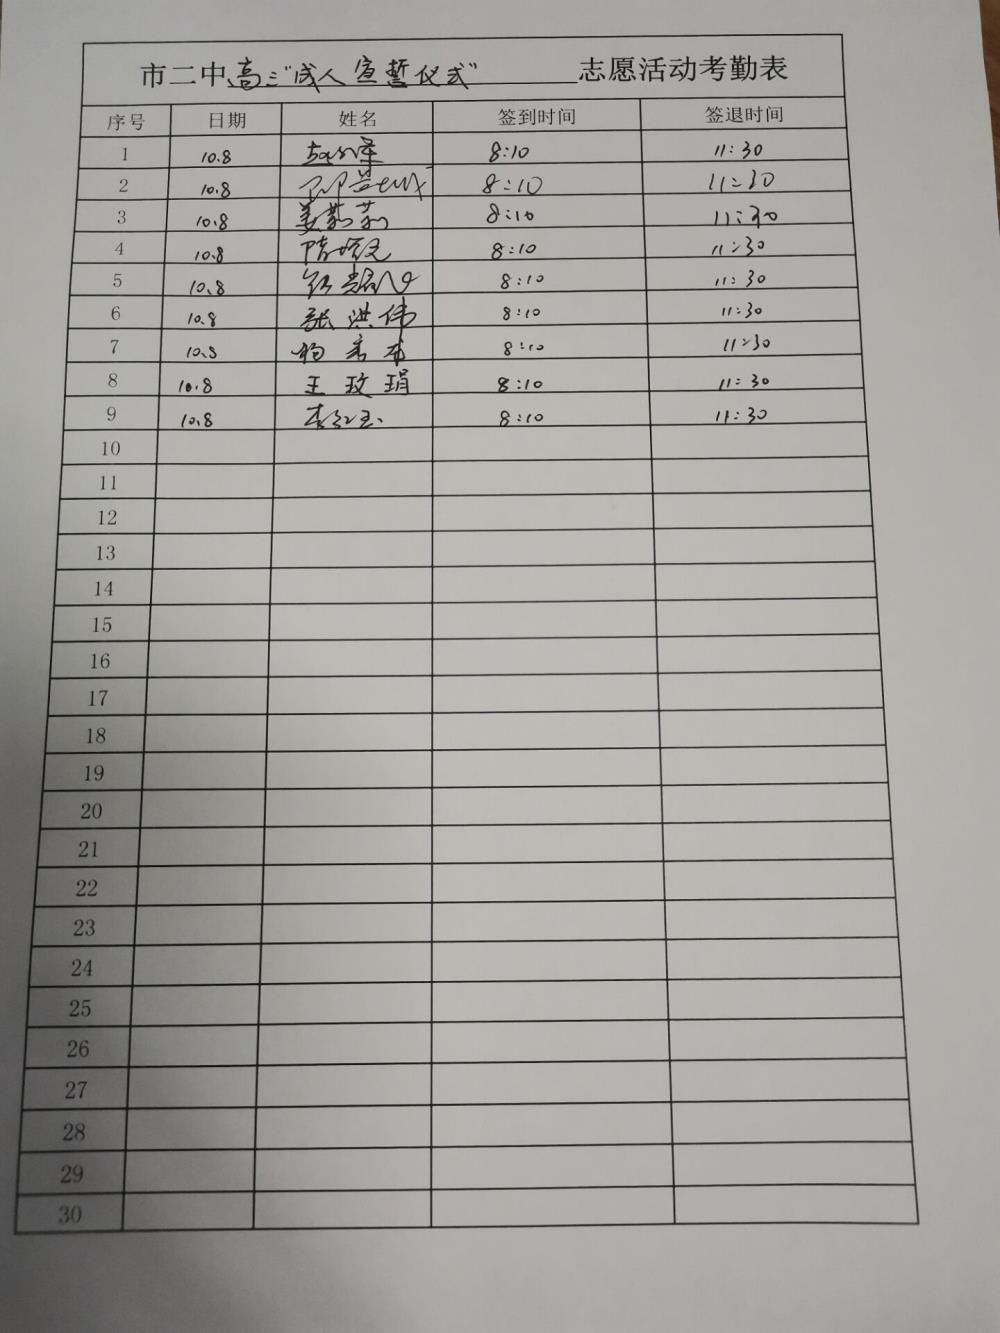 市二中高三"成人宣誓仪式"志愿活动考勤表
序号 日期 姓名 签到时间 签退时间
1 10.8 8:10 11:30
2 10.8 8:10 11:30
3 10.8 姜莉莉 8:10 11:30
4 10.8 8:10 11:30
5 10.8 8:10 11:30
6 10.8 张洪伟 8:10 11:30
7 10.8 8:10 11:30
8 10.8 王玫琄 8:10 11:30
9 10.8 8:10 11:30
10
11
12
13
14
15
16
17
18
19
20
21
22
23
24
25
26
27
28
29
30